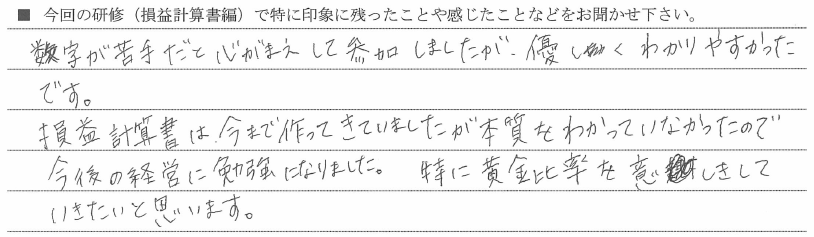 ■ 今回の研修（損益計算書編）で特に印象に残ったことや感じたことなどをお聞かせ下さい。
数字が苦手だと心がまえして参加しましたが、優しくわかりやすかった
です。
損益計算書は、今まで作ってきていましたが本質をわかっていなかったので
今後の経営に勉強になりました。 特に黄金比率を意しきして
いきたいと思います。